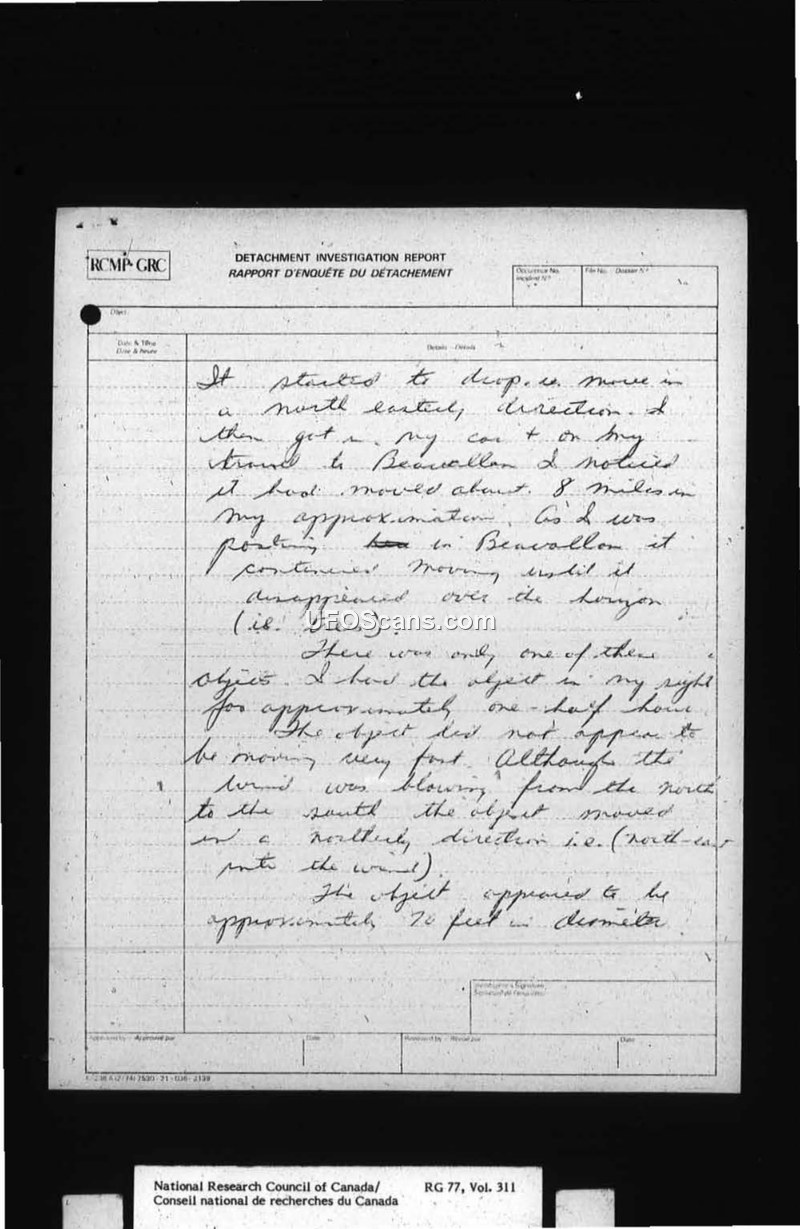 RCMP-GRC
DETACHMENT INVESTIGATION REPORT
RAPPORT D'ENQUÊTE DU DÉTACHEMENT
Occurrence No.
Incident N°
File No. Dossier N°
Objet
Date & Time
Date & heure
Details - Détails
It started to drop. i.e. move in
a north easterly direction. I
then got in my car + on my
travel to Beauvallon I noticed
it had moved about 8 miles in
my approximation. As I was
posting in Beauvallon it
continued moving until it
disappeared over the horizon
(ie.
There was only one of these
object. I had the object in my sight
for approximately one-half hour.
The object did not appear to
be moving very fast. Although the
wind was blowing from the north
to the south the object moved
in a northerly direction i.e. (north-east
into the wind).
The object appeared to be
approximately 70 feet in diameter
UFOScans.com
Investigator's Signature
Approved by - Approuvé par
Date
Reviewed by - Révisé par
Date
7530-21-036-2139
National Research Council of Canada/
Conseil national de recherches du Canada
RG 77, Vol. 311